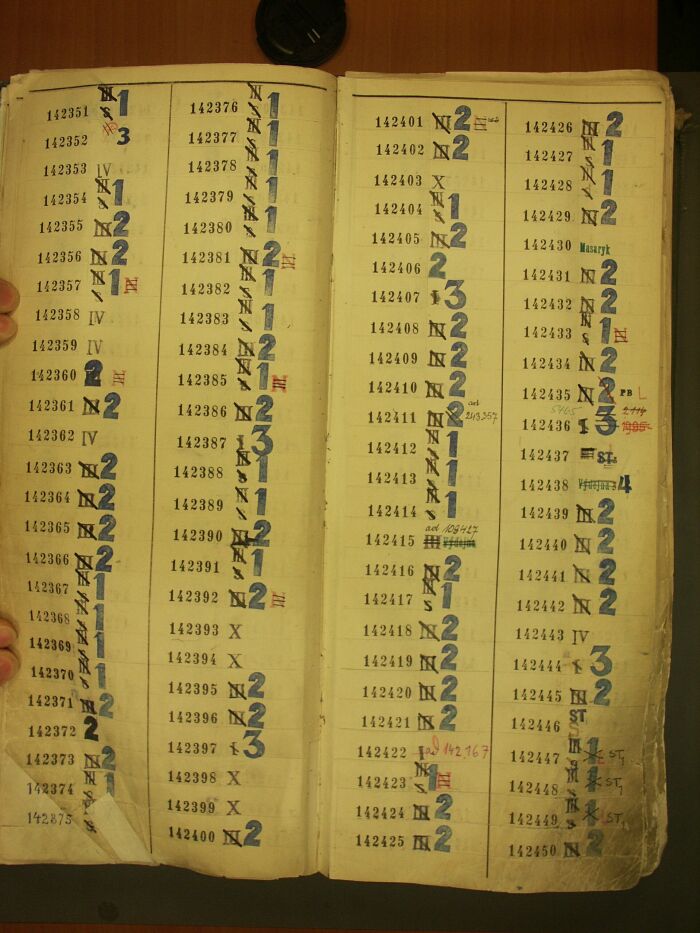 142351 1
142352 3
142353 IV
142354 1
142355 2
142356 2
142357 1 III
142358 IV
142359 IV
142360 2 III
142361 2
142362 IV
142363 2
142364 2
142365 2
142366 2
142367 1
142368 1
142369 1
142370 1
142371 2
142372 2
142373 2
142374 1
142375
142376 1
142377 1
142378 1
142379 1
142380 1
142381 2 III
142382 1
142383 1
142384 2
142385 1 III
142386 2
142387 I 3
142388 1
142389 1
142390 2
142391 1
142392 2 III
142393 X
142394 X
142395 2
142396 2
142397 I 3
142398 X
142399 X
142400 2
142401 2 III
142402 2
142403 X
142404 1
142405 2
142406 2
142407 I 3
142408 2
142409 2
142410 2
142411 2 ad 243357
142412 1
142413 1
142414 1
142415 III Výdejna ad 108427
142416 2
142417 1
142418 2
142419 2
142420 2
142421 2
142422 I ad 142,167
142423 1 III
142424 2
142425 2
142426 2
142427 1
142428 1
142429 2
142430 Masaryk
142431 2
142432 2
142433 1 III
142434 2
142435 2 PB L
142436 5465 I 3 2114
142437 III ST
142438 Výdejna 4
142439 2
142440 2
142441 2
142442 2
142443 IV
142444 I 3
142445 2
142446 ST
142447 1 ST1
142448 1 ST1
142449 1 ST1
142450 2